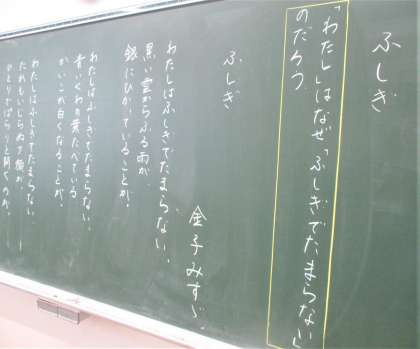 ふしぎ
「わたし」はなぜ「ふしぎでたまらない」
のだろう
ふしぎ
金子みすゞ
わたしはふしぎでたまらない、
黒い雲からふる雨が、
銀にひかっていることが。
わたしはふしぎでたまらない、
青いくわの葉たべている、
かいこが白くなることが。
わたしはふしぎでたまらない、
たれもいじらぬ夕顔が、
ひとりでぱらりと開くのが。